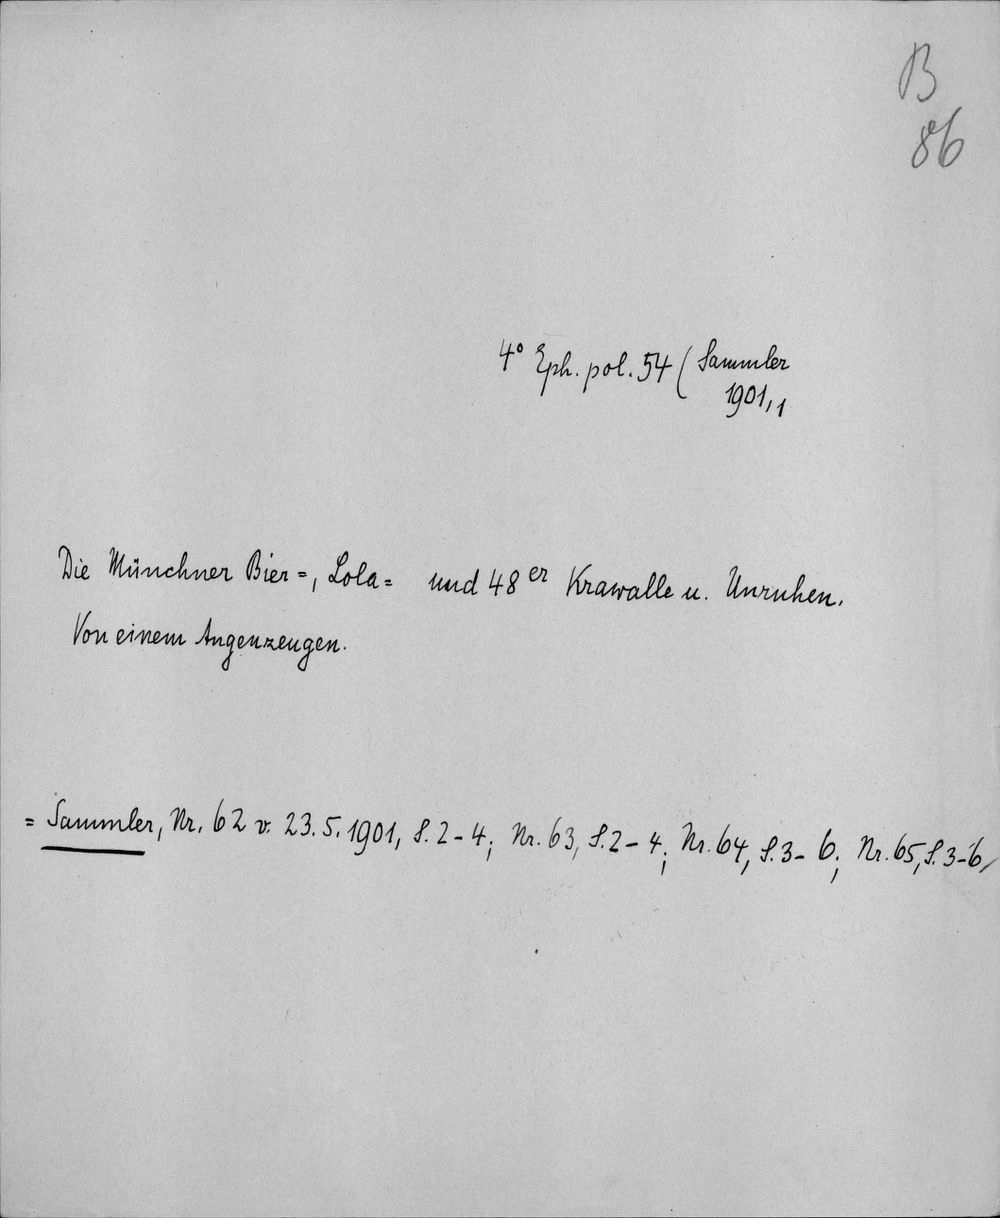 B
86
4° Eph. pol. 54 (Sammler
1901,1
Die Münchner Bier=, Lola= und 48er Krawalle u. Unruhen.
Von einem Augenzeugen.
= Sammler, Nr. 62 v. 23.5.1901, S. 2-4; Nr. 63, S. 2-4; Nr. 64, S. 3-6; Nr. 65, S. 3-6